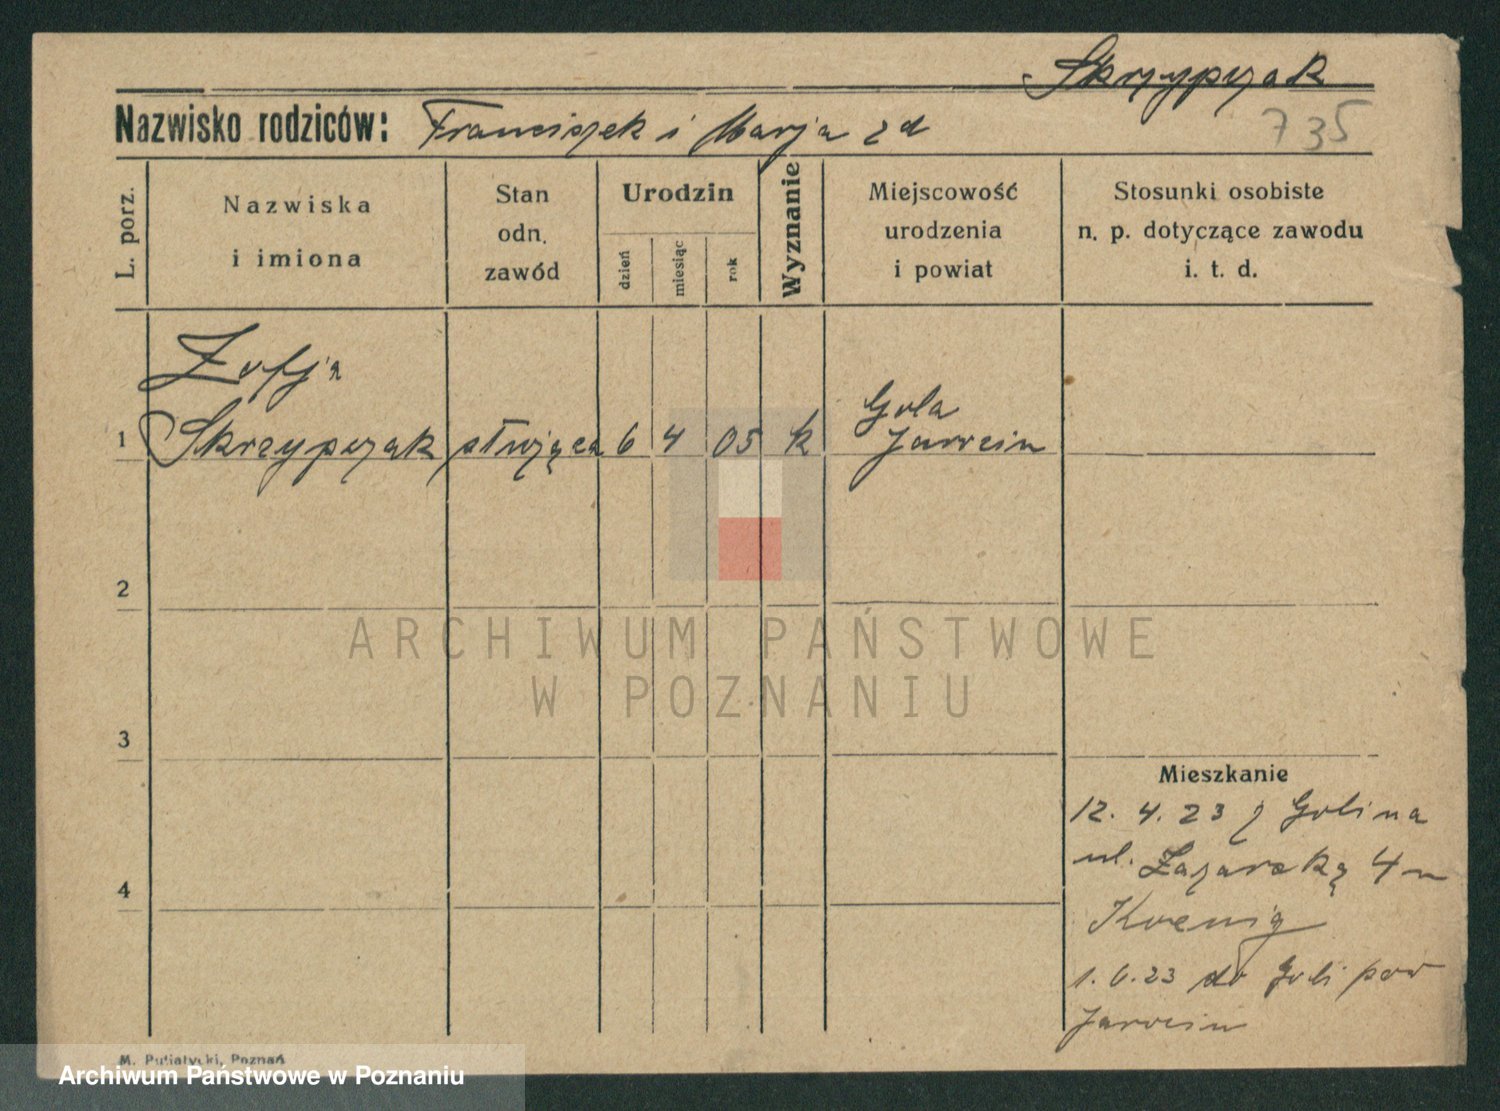 Skrzypczak
Nazwisko rodziców: Franciszek i Marja zd
735
L. porz.
Nazwiska
i imiona
Stan
odn.
zawód
Urodzin
dzień
miesiąc
rok
Wyznanie
Miejscowość
urodzenia
i powiat
Stosunki osobiste
n. p. dotyczące zawodu
i. t. d.
Zofja
1 Skrzypczak służąca 6 4 05 k Gola
Jarocin
2
ARCHIWUM PAŃSTWOWE
W POZNANIU
3
Mieszkanie
12. 4. 23 z Golina
ul. Łazarską 4
Koenig
1. 6. 23 do Goli pow
Jarocin
4
M. Putiatycki, Poznań
Archiwum Państwowe w Poznaniu